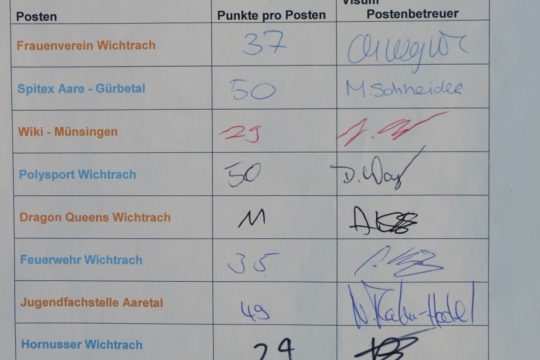 Posten Punkte pro Posten Visum Postenbetreuer
Frauenverein Wichtrach 37
Spitex Aare - Gürbetal 50 M. Schneider
Wiki - Münsingen 29
Polysport Wichtrach 50
Dragon Queens Wichtrach 11
Feuerwehr Wichtrach 35
Jugendfachstelle Aaretal 49
Hornusser Wichtrach 29